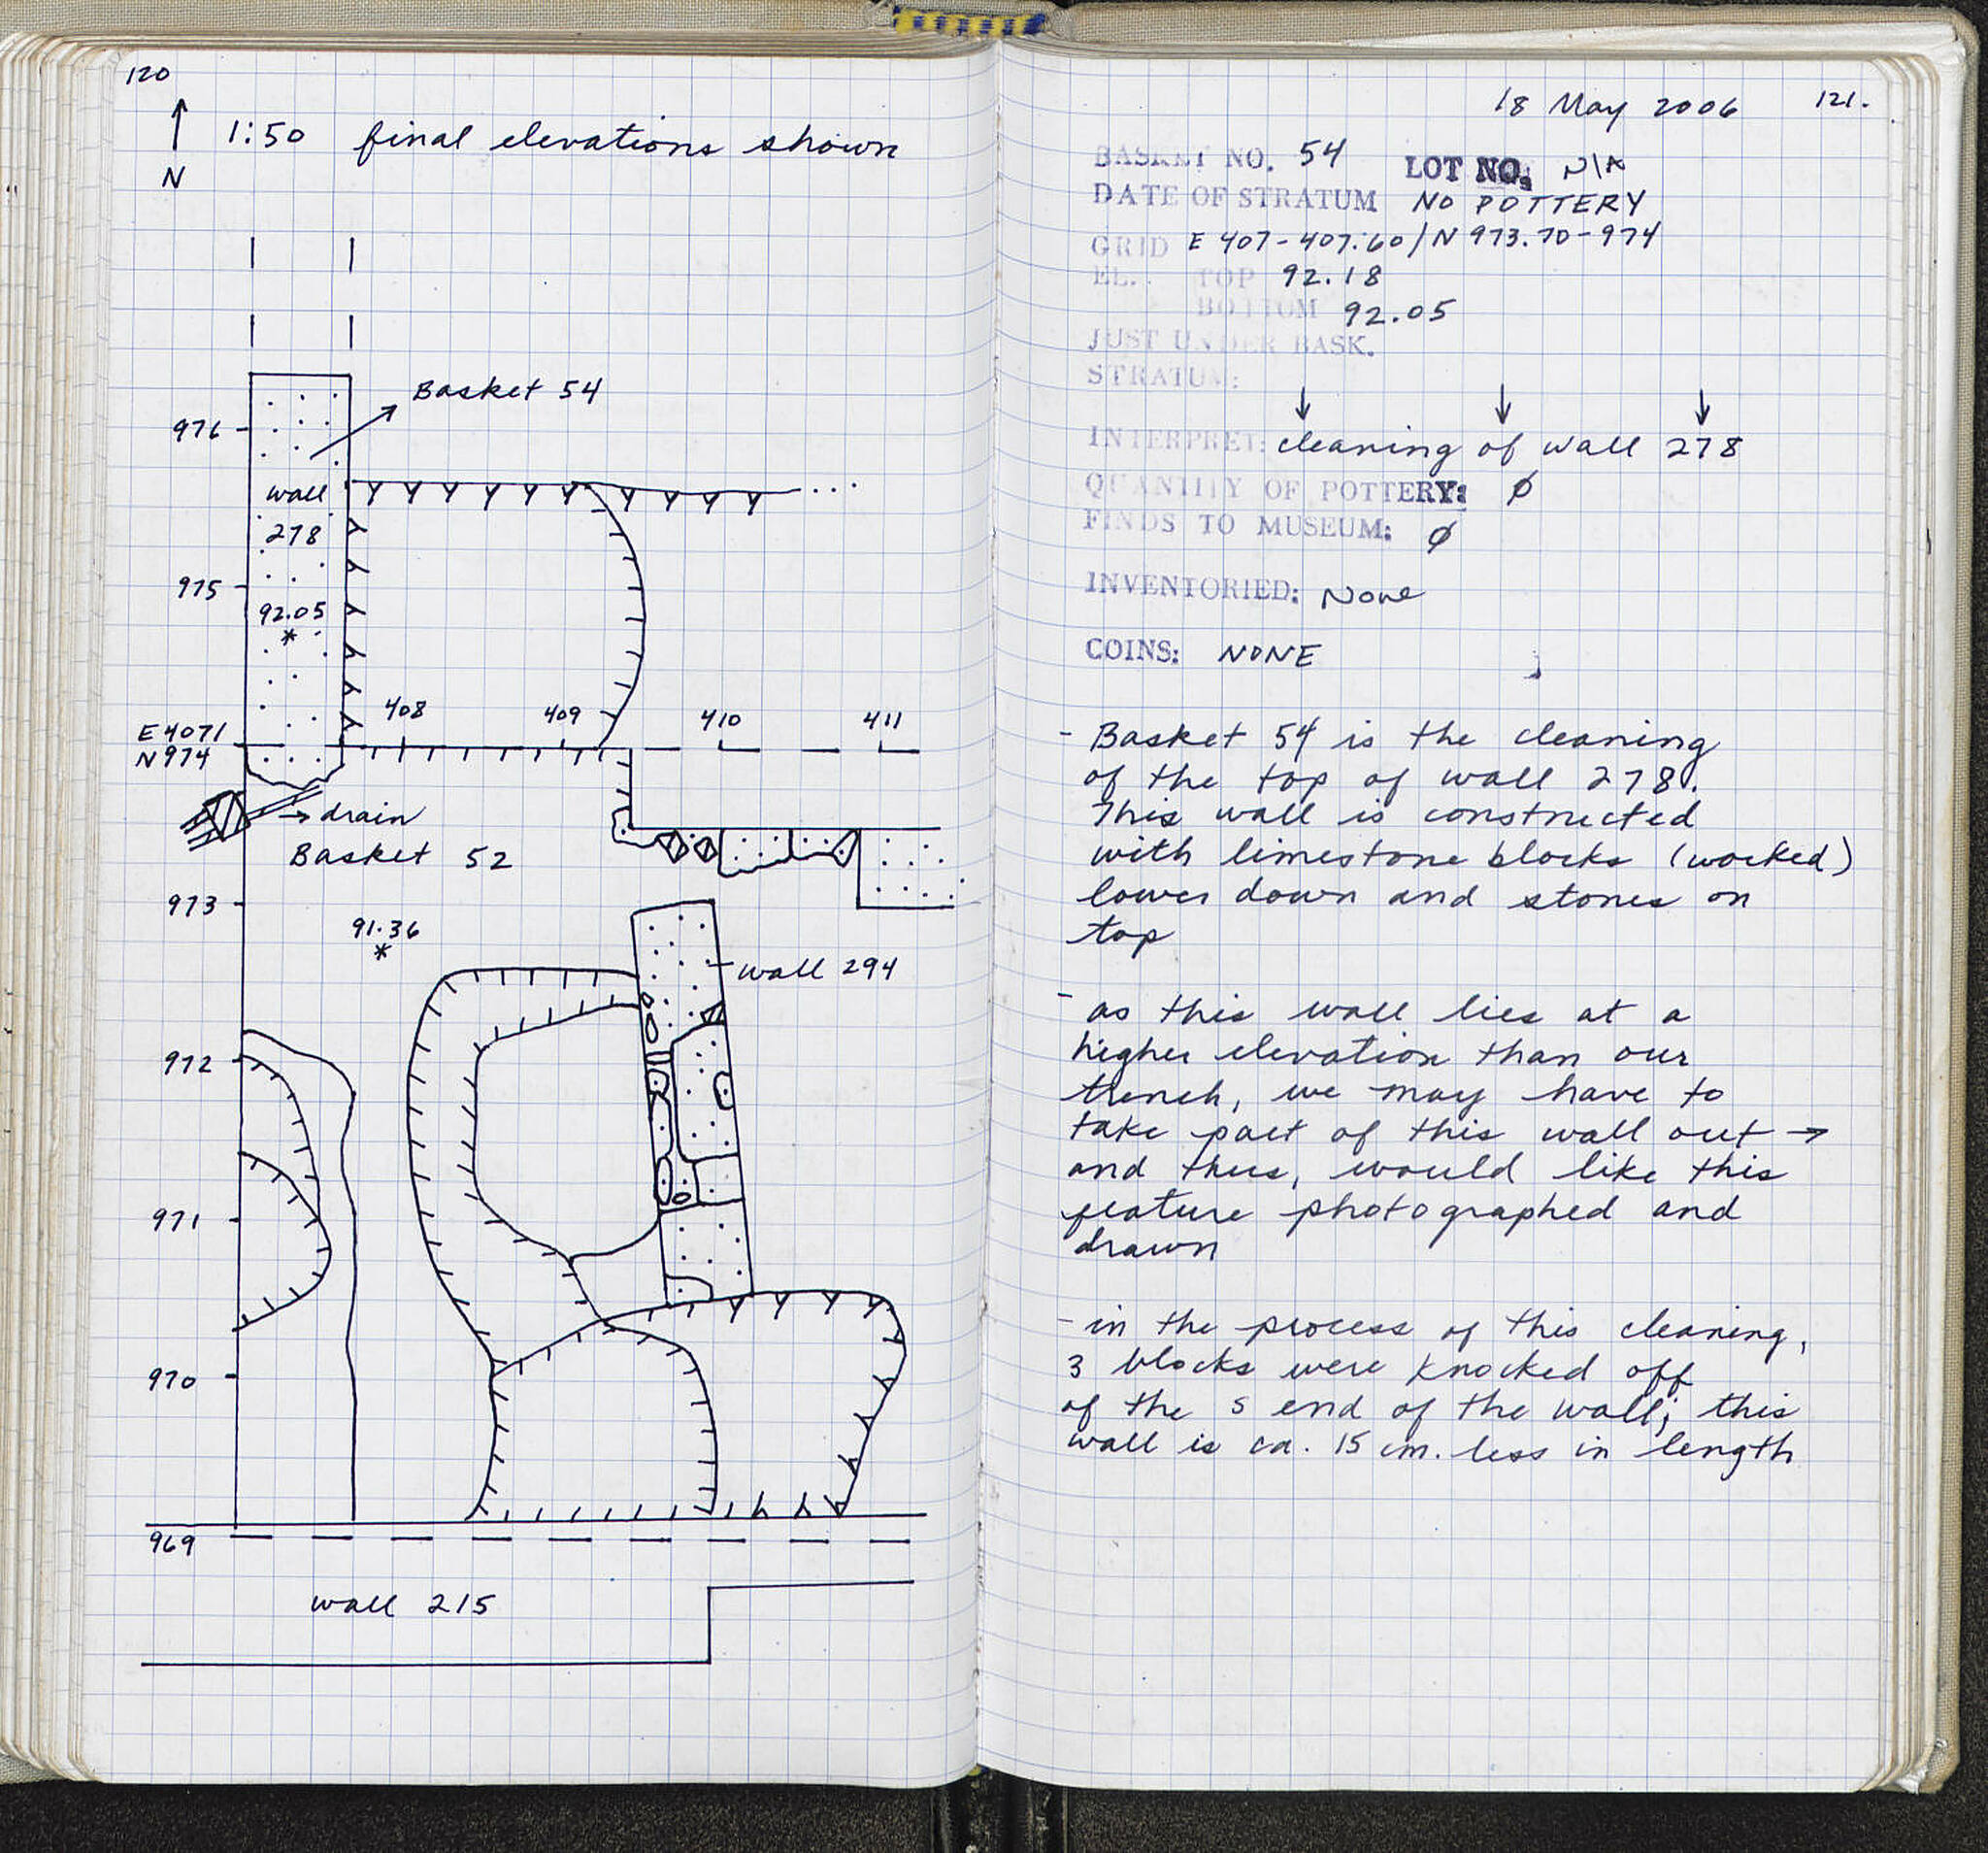 120
1:50 final elevations shown
N
Basket 54
976
wall
278
975
92.05
*
408 409 410 411
E 407/
N 974
→ drain
Basket 52
973
91.36
*
wall 294
972
971
970
969
wall 215
18 May 2006 121.
BASKET NO. 54 LOT NO. N/A
DATE OF STRATUM NO POTTERY
GRID E 407-407.60/N 973.70-974
EL. TOP 92.18
BOTTOM 92.05
JUST UNDER BASK.
STRATUM:
INTERPRET: cleaning of wall 278
QUANTITY OF POTTERY: Ø
FINDS TO MUSEUM: Ø
INVENTORIED: None
COINS: NONE
- Basket 54 is the cleaning
of the top of wall 278.
This wall is constructed
with limestone blocks (worked)
lower down and stones on
top
- as this wall lies at a
higher elevation than our
trench, we may have to
take part of this wall out →
and thus, would like this
feature photographed and
drawn
- in the process of this cleaning,
3 blocks were knocked off
of the S end of the wall; this
wall is ca. 15 cm. less in length